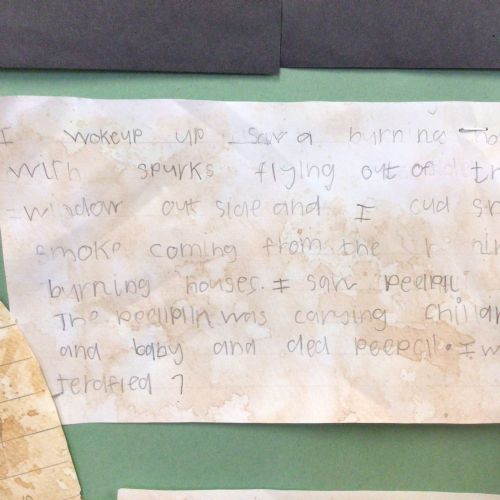 I wokeup up saw a burning
with spurks flying out of the
window out side and I cud
smoke coming from the
burning houses. I saw
The was carsing childar
and baby and ded peepcll. I w
terdfied